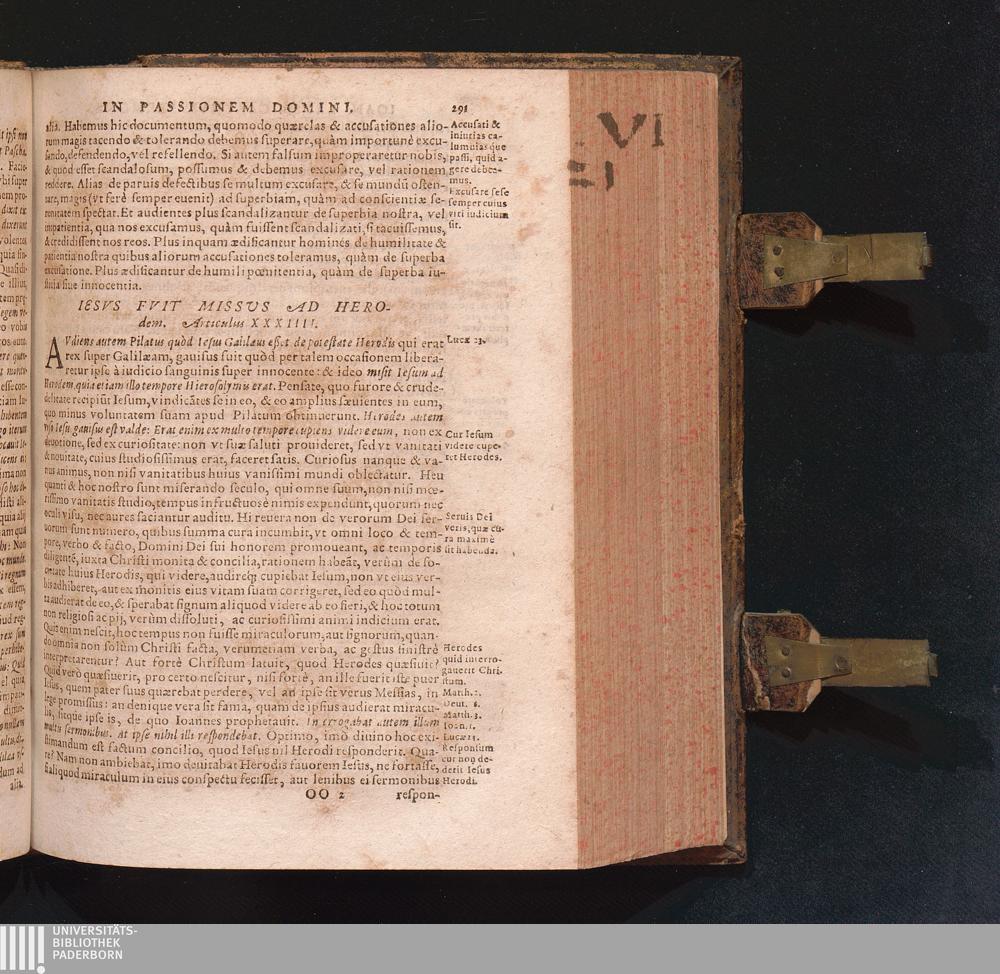 IN PASSIONEM DOMINI. 291
alia. Habemus hic documentum, quomodo quærelas & accusationes alio-
rum magis tacendo & tolerando debemus superare, quàm importunè excu-
sando, defendendo, vel refellendo. Si autem falsum improperaretur nobis,
& quod esset scandalosum, possumus & debemus excusare, vel rationem
reddere. Alias de paruis defectibus se multum excusare, & se mundū osten-
tare, magis (vt ferè semper euenit) ad superbiam, quàm ad conscientiæ se-
renitatem spectat. Et audientes plus scandalizantur de superbia nostra, vel
impatientia, qua nos excusamus, quàm fuissent scandalizati, si tacuissemus,
& credidissent nos reos. Plus inquam ædificantur homines de humilitate &
patientia nostra quibus aliorum accusationes toleramus, quàm de superba
excusatione. Plus ædificantur de humili pœnitentia, quàm de superba iu-
stitia siue innocentia.
Accusati &
iniurias ca-
lumnias que
passi, quid a-
gere debea-
mus.
Excusare sese
semper cuius
viri iudicium
sit.
IESVS FVIT MISSVS AD HERO-
dem. Articulus XXXIIII.
AVdiens autem Pilatus quòd Iesus Galilæus esset de potestate Herodis qui erat
rex super Galilæam, gauisus fuit quòd per talem occasionem libera-
retur ipse à iudicio sanguinis super innocente: & ideo misit Iesum ad
Herodem, quia etiam illo tempore Hierosolymis erat. Pensate, quo furore & crude-
delitate recipiūt Iesum, vindicātes se in eo, & eo amplius sæuientes in eum,
quo minus voluntatem suam apud Pilatum obtinuerunt. Herodes autem
viso Iesu gauisus est valde: Erat enim ex multo tempore cupiens videre eum, non ex
deuotione, sed ex curiositate: non vt suæ saluti prouideret, sed vt vanitati
& nouitate, cuius studiosissimus erat, faceret satis. Curiosus nanque & va-
nus animus, non nisi vanitatibus huius vanissimi mundi oblectatur. Heu
quanti & hoc nostro sunt miserando seculo, qui omne suum, non nisi mœ-
rissimo vanitatis studio, tempus infructuosè nimis expendunt, quorum nec
oculi visu, nec aures saciantur auditu. Hi reuera non de verorum Dei ser-
uorum sunt numero, quibus summa cura incumbit, vt omni loco & tem-
pore, verbo & facto, Domini Dei sui honorem promoueant, ac temporis
diligentē, iuxta Christi monita & concilia, rationem habeāt, verùm de so-
cietate huius Herodis, qui videre, audireq; cupiebat Iesum, non vt eius ver-
bis adhiberet, aut ex monitis eius vitam suam corrigeret, sed eo quòd mul-
ta audierat de eo, & sperabat signum aliquod videre ab eo fieri, & hoc totum
non religiosi ac pij, verùm dissoluti, ac curiosissimi animi indicium erat.
Quis enim nescit, hoc tempus non fuisse miraculorum, aut signorum, quan-
do omnia non solùm Christi facta, verumetiam verba, ac gestus sinistrè
interpretarentur? Aut fortè Christum latuit, quod Herodes quæsiuit?
Quid verò quæsiuerit, pro certo nescitur, nisi fortè, an ille fuerit iste puer
Iesus, quem pater suus quærebat perdere, vel an ipse sit verus Messias, in
lege promissus: an denique vera sit fama, quam de ipsius audierat miracu-
lis, sitque ipse is, de quo Ioannes prophetauit. Interrogabat autem illum
multis sermonibus. At ipse nihil illi respondebat. Optimo, imò diuino hoc exi-
stimandum est factum concilio, quod Iesus nil Herodi responderit. Qua-
re? Nam non ambiebat, imo deuitabat Herodis fauorem Iesus, ne fortasse,
si aliquod miraculum in eius conspectu fecisset, aut lenibus ei sermonibus
OO 2 respon-
Lucæ 23.
Cur Iesum
videre cupe-
ret Herodes.
Seruis Dei
veris, quæ cu-
ra maximè
sit habenda.
Herodes
quid interro-
gauerit Chri-
stum.
Matth. 2.
Deut. 8.
Matth. 3.
Ioan. 1.
Lucæ 23.
Responsum
cur non de-
derit Iesus
Herodi.
VI
UNIVERSITÄTS-
BIBLIOTHEK
PADERBORN